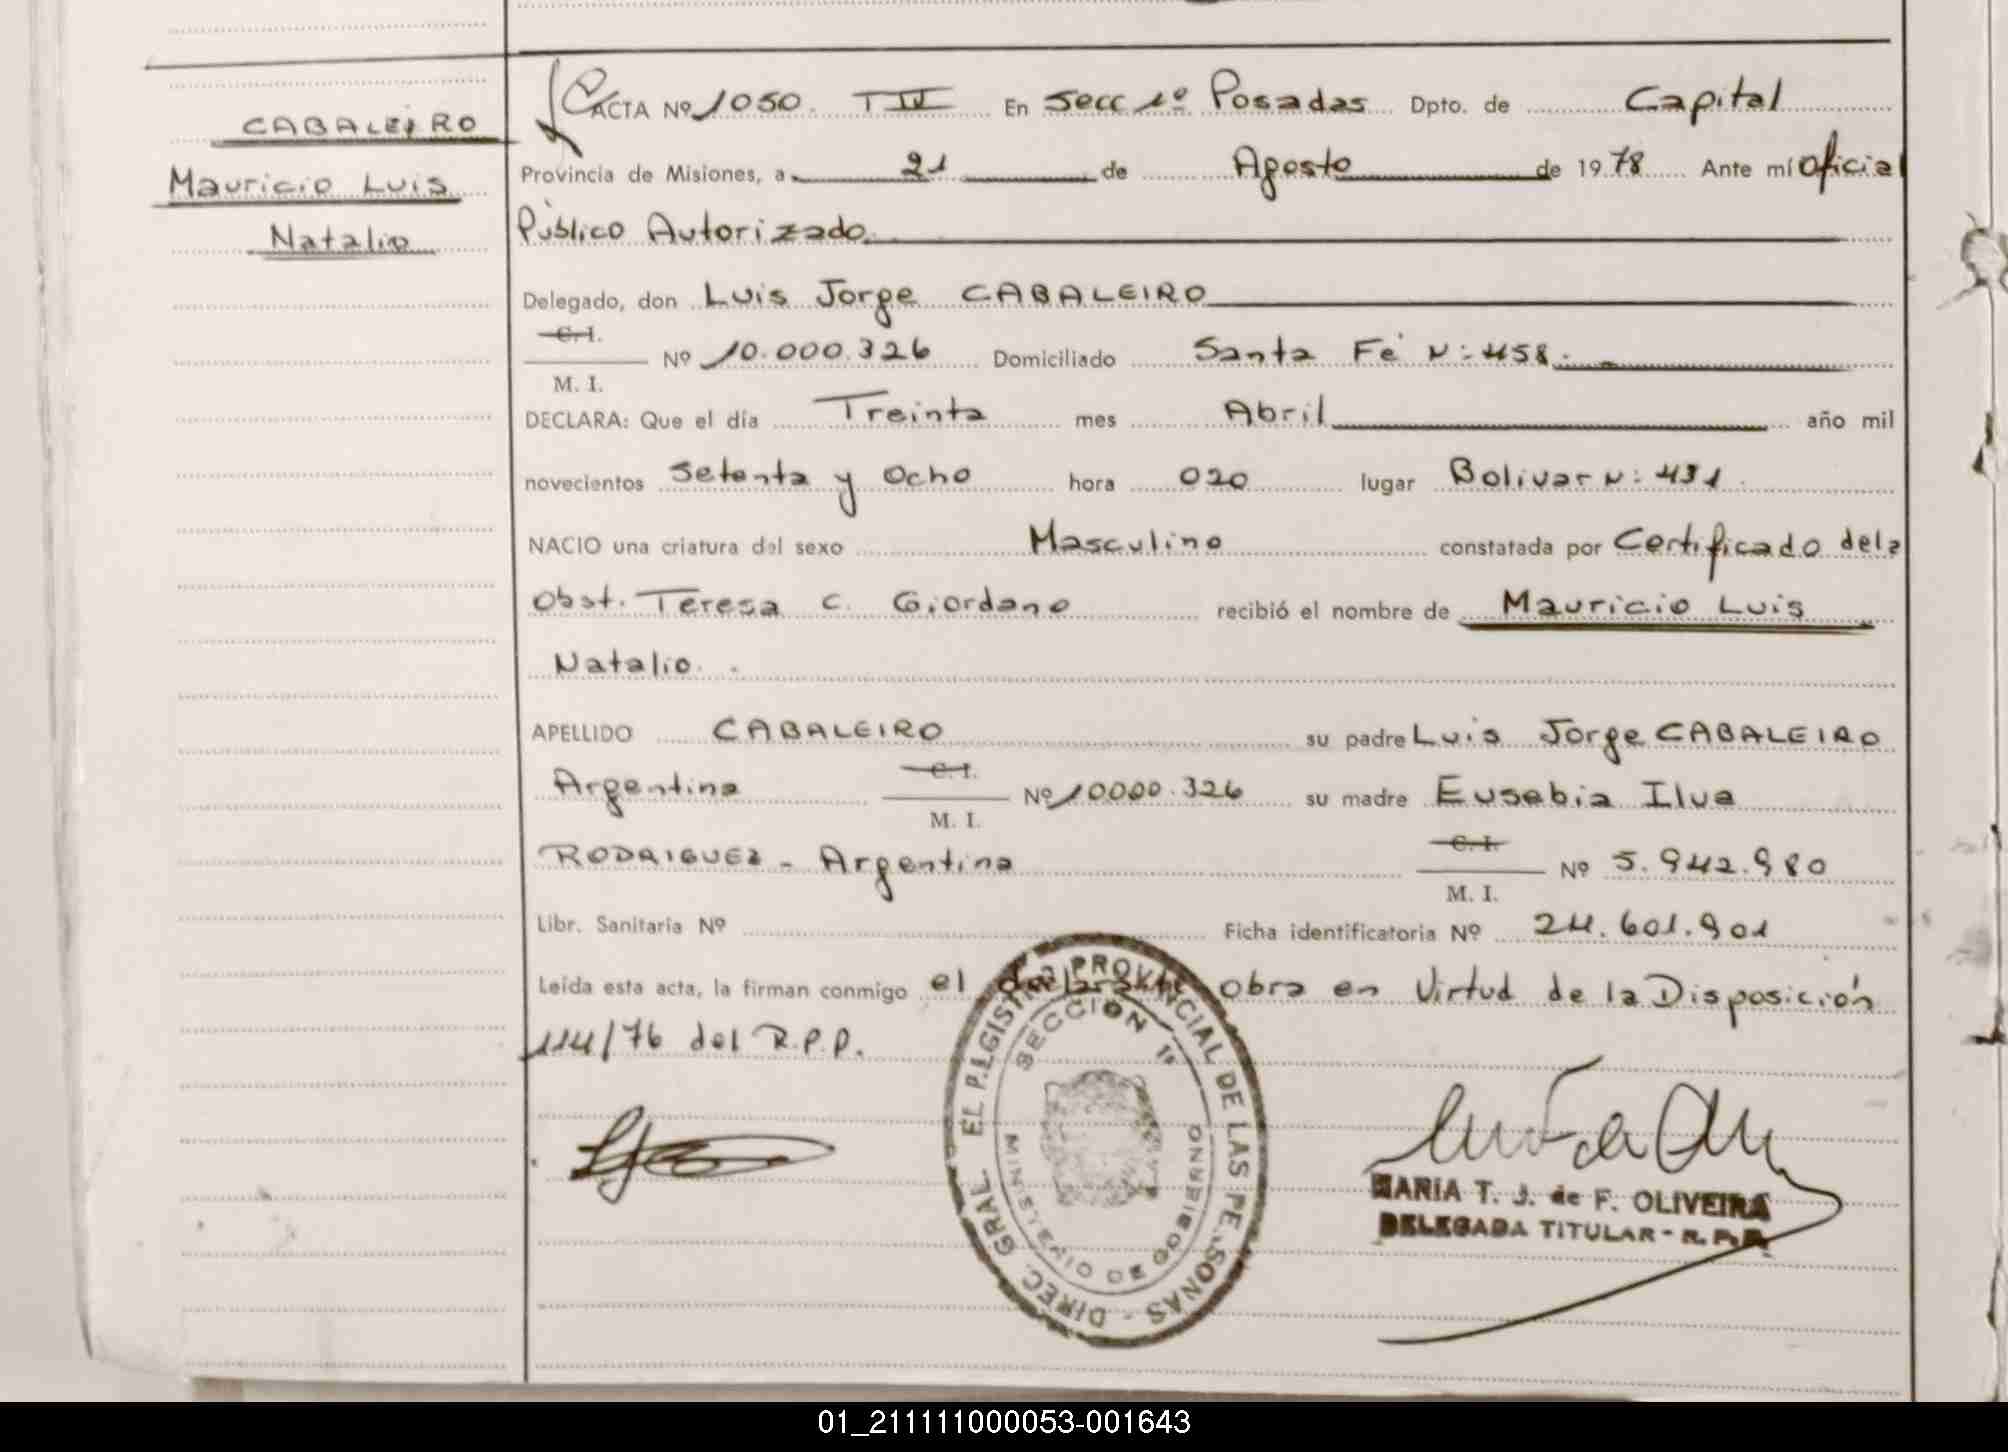 CABALEIRO
Mauricio Luis
Natalio
ACTA Nº 1050. T IV En Secc 1º Posadas Dpto. de Capital
Provincia de Misiones, a 21 de Agosto de 1978 Ante mí Oficial
Público Autorizado
Delegado, don Luis Jorge CABALEIRO
C. I.
M. I. Nº 10.000.326 Domiciliado Santa Fé N: 458.
DECLARA: Que el día Treinta mes Abril año mil
novecientos Setenta y Ocho hora 020 lugar Bolivar N: 431
NACIO una criatura del sexo Masculino constatada por Certificado dela
Obst. Teresa C. Giordano recibió el nombre de Mauricio Luis
Natalio.
APELLIDO CABALEIRO su padre Luis Jorge CABALEIRO
Argentina C. I. M. I. Nº 10000.326 su madre Eusebia Ilva
RODRIGUEZ - Argentina C. I. M. I. Nº 5.942.980
Libr. Sanitaria Nº Ficha identificatoria Nº 24.601.901
Leída esta acta, la firman conmigo el declarante obra en Virtud de la Disposición
114/76 del R.P.P.
DIREC. GRAL. PROVINCIAL DE LAS
SECCION 1ª
MINISTERIO DE GOBIERNO
MARIA T. J. de F. OLIVEIRA
DELEGADA TITULAR - R. P. P.
01_211111000053-001643